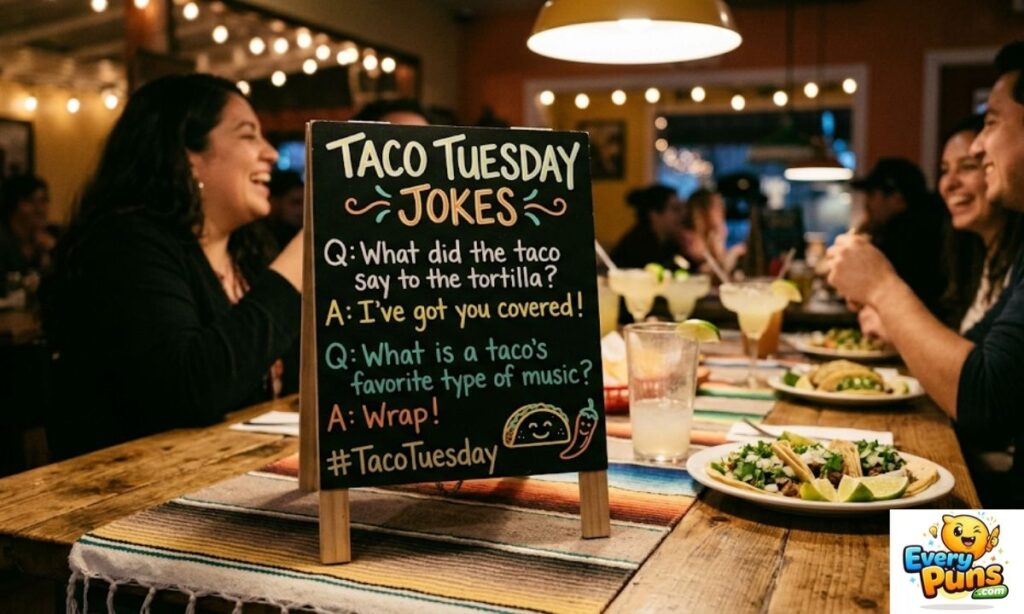 TACO TUESDAY
JOKES
Q: What did the taco
say to the tortilla?
A: I've got you covered!
Q: What is a taco's
favorite type of music?
A: Wrap!
#TacoTuesday
Every
Puns
.com